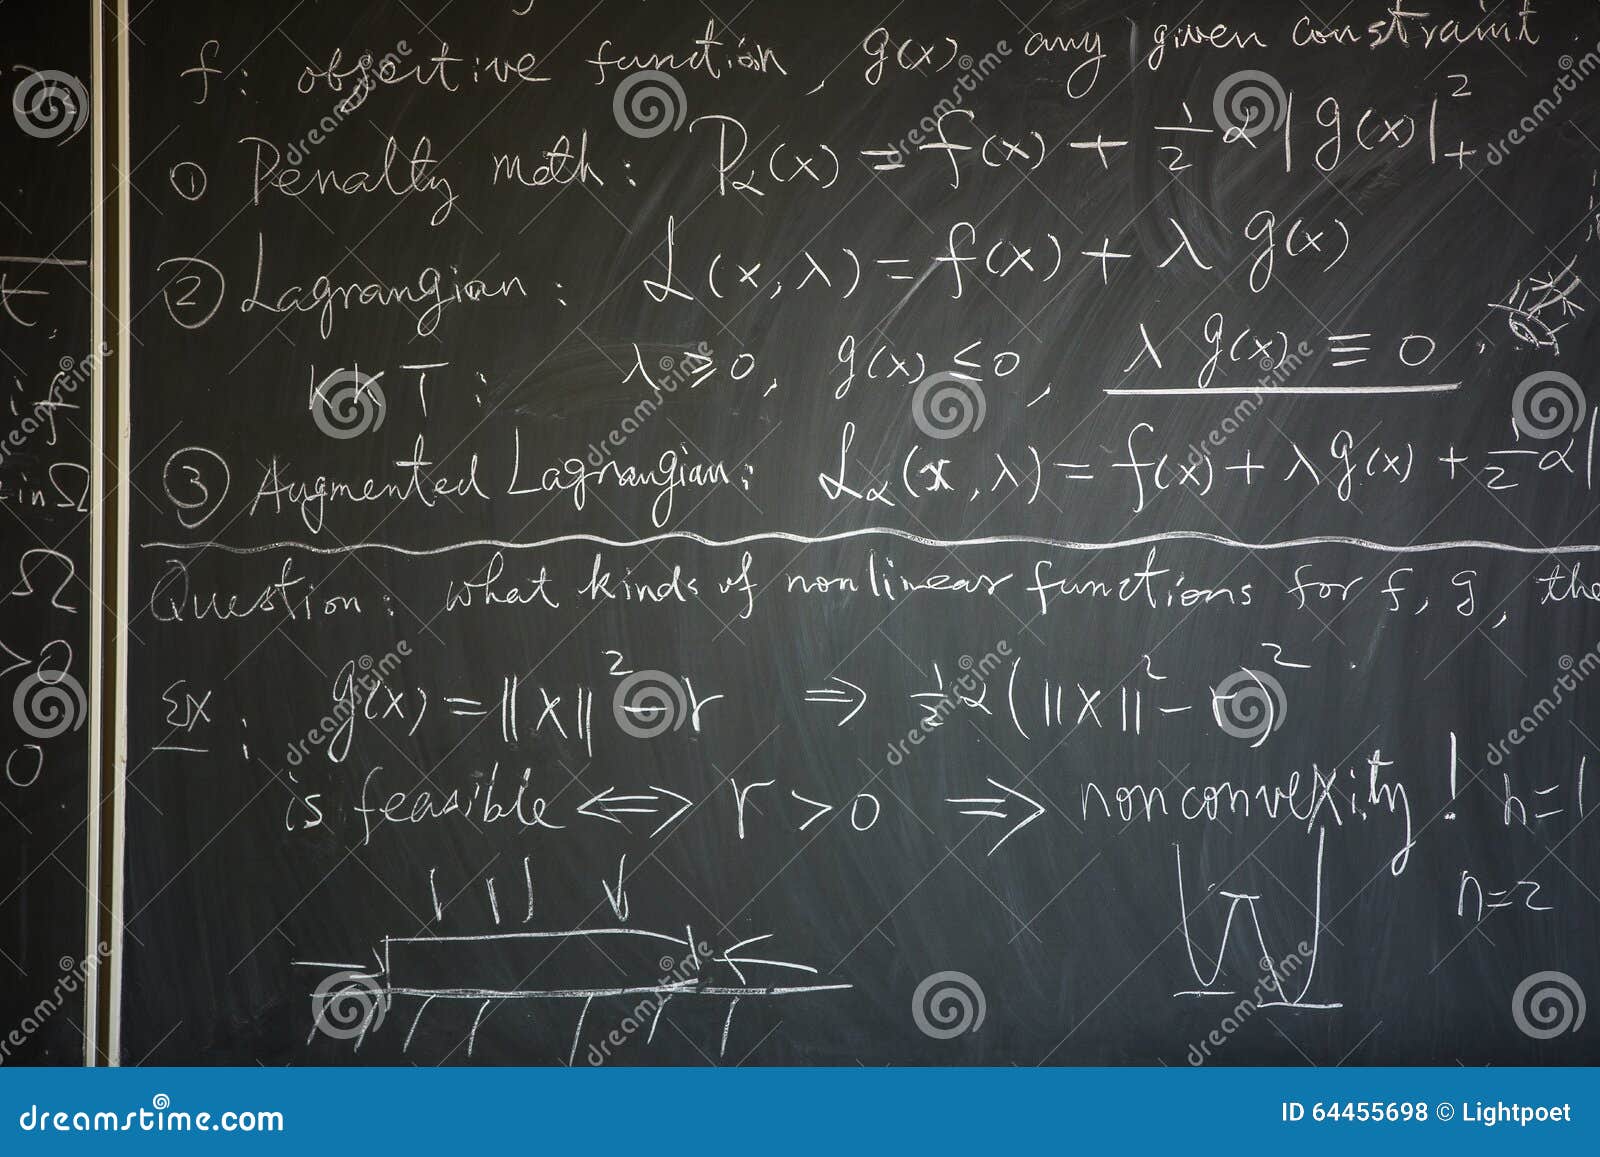 f: objective function, g(x) any given constraint.
① Penalty meth: Pα(x) = f(x) + 1/2 α|g(x)|²₊
② Lagrangian: L(x, λ) = f(x) + λ g(x)
KKT: λ ≥ 0, g(x) ≤ 0, λ g(x) ≡ 0.
③ Augmented Lagrangian: Lα(x, λ) = f(x) + λ g(x) + 1/2 α|
Question: what kinds of nonlinear functions for f, g, the
Ex: g(x) = ||x||² - r ⇒ 1/2 α(||x||² - r)².
is feasible ⇔ r > 0 ⇒ nonconvexity! n=1
n=2
t.
if
in Ω
Ω
> 0
0
dreamstime.com
ID 64455698 © Lightpoet